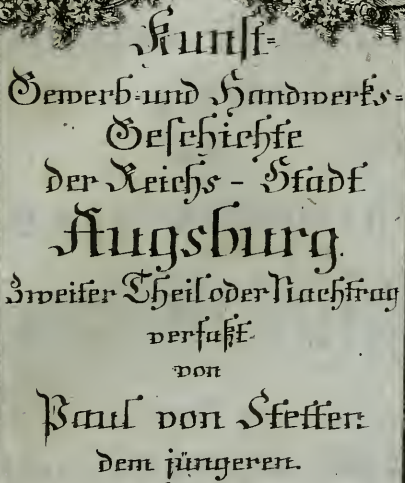 Kunst-
Gewerb-und Handwerks-
Geschichte
der Reichs - Stadt
Augsburg.
Zweiter Theil oder Nachtrag
verfaßt
von
Paul von Stetten
dem jüngeren.